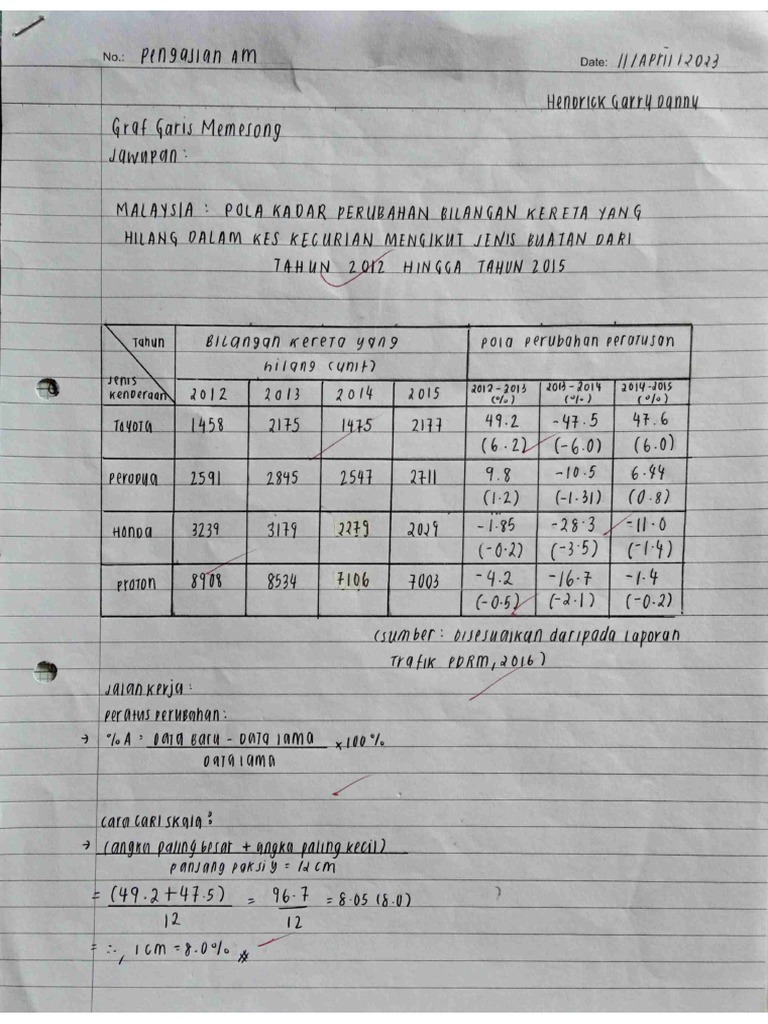 No.: Pengajian AM
Date: 11/April/2023
Hendrick Garry Danny
Graf Garis Memesong
Jawapan:
MALAYSIA: POLA KADAR PERUBAHAN BILANGAN KERETA YANG
HILANG DALAM KES KECURIAN MENGIKUT JENIS BUATAN DARI
TAHUN 2012 HINGGA TAHUN 2015
Tahun Bilangan Kereta yang Pola perubahan peratusan
hilang (unit)
Jenis
Kenderaan 2012 2013 2014 2015 2012-2013 (%) 2013-2014 (%) 2014-2015 (%)
Toyota 1458 2175 1475 2177 49.2 -47.5 47.6
(6.2) (-6.0) (6.0)
Perodua 2591 2845 2547 2711 9.8 -10.5 6.44
(1.2) (-1.31) (0.8)
Honda 3239 3179 2279 2029 -1.85 -28.3 -11.0
(-0.2) (-3.5) (-1.4)
Proton 8908 8534 7106 7003 -4.2 -16.7 -1.4
(-0.5) (-2.1) (-0.2)
(Sumber: Disesuaikan daripada Laporan
Trafik PDRM, 2016)
Jalan kerja:
Peratus Perubahan:
→ %A = Data Baru - Data lama × 100%
Data lama
Cara Cari Skala:
→ (angka paling besar + angka paling kecil)
panjang paksi y = 12 cm
= (49.2+47.5) = 96.7 = 8.05 (8.0)
12 12
= ∴, 1 cm = 8.0% #